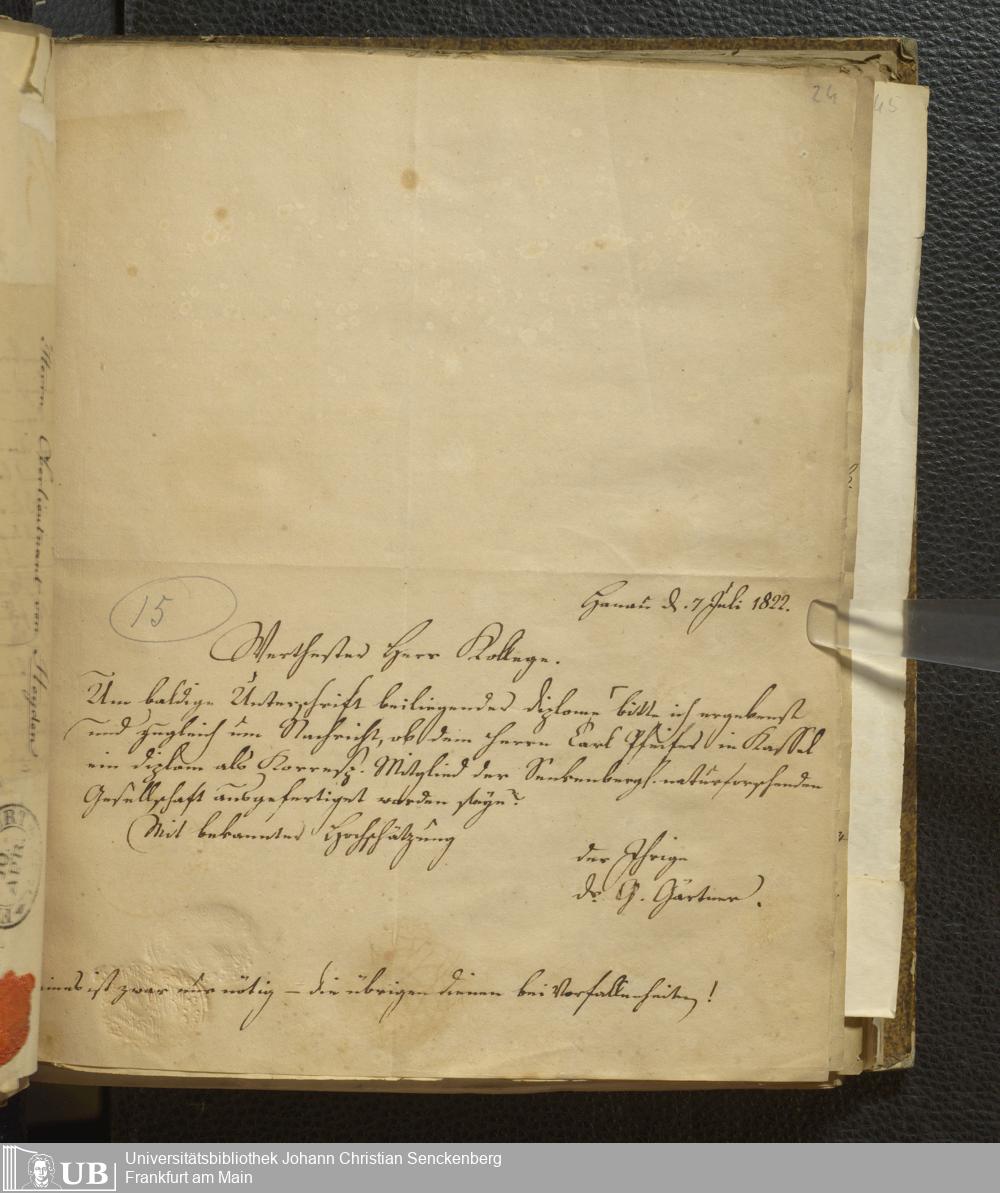 24
45
15
Hanau d. 7 Juli 1822.
Werthester Herr Kollege.
Um baldige Unterschrift beiliegender Diplome bitte ich ergebenst
und zugleich um Nachricht, ob dem Herrn Carl Pfeifer in Kassel
ein Diplom als Korresp. Mitglied der Senkenberg. naturforschenden
Gesellschaft ausgefertiget worden seye?
Mit bekannter Hochschätzung
der Ihrige
Dr G. Gärtner.
eines ist zwar nur nötig – die übrigen dienen bei Vorfallenheiten!
Herrn Oberlieutnant von Heyden
APR
UB
Universitätsbibliothek Johann Christian Senckenberg
Frankfurt am Main